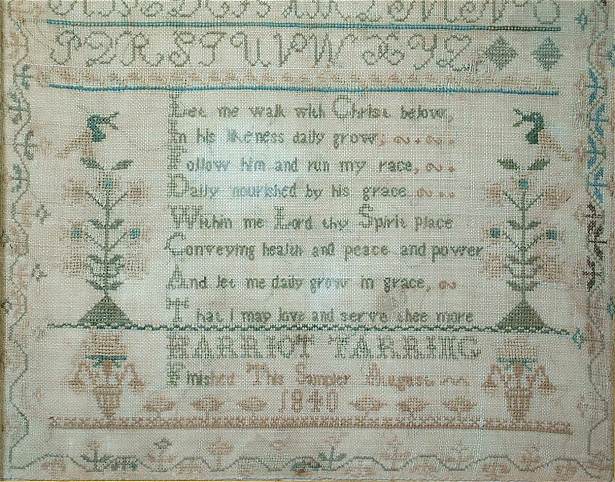 P Q R S T U V W X Y Z
Let me walk with Christ below,
In his likeness daily grow;
Follow him and run my race,
Daily nourished by his grace
Within me Lord thy Spirit place
Conveying health and peace and power
And let me daily grow in grace,
That I may love and serve thee more
HARRIOT TARRING
Finished This Sampler August
1840